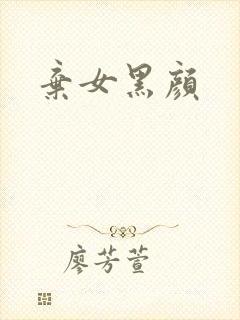 棄女黑顏
廖芳萱